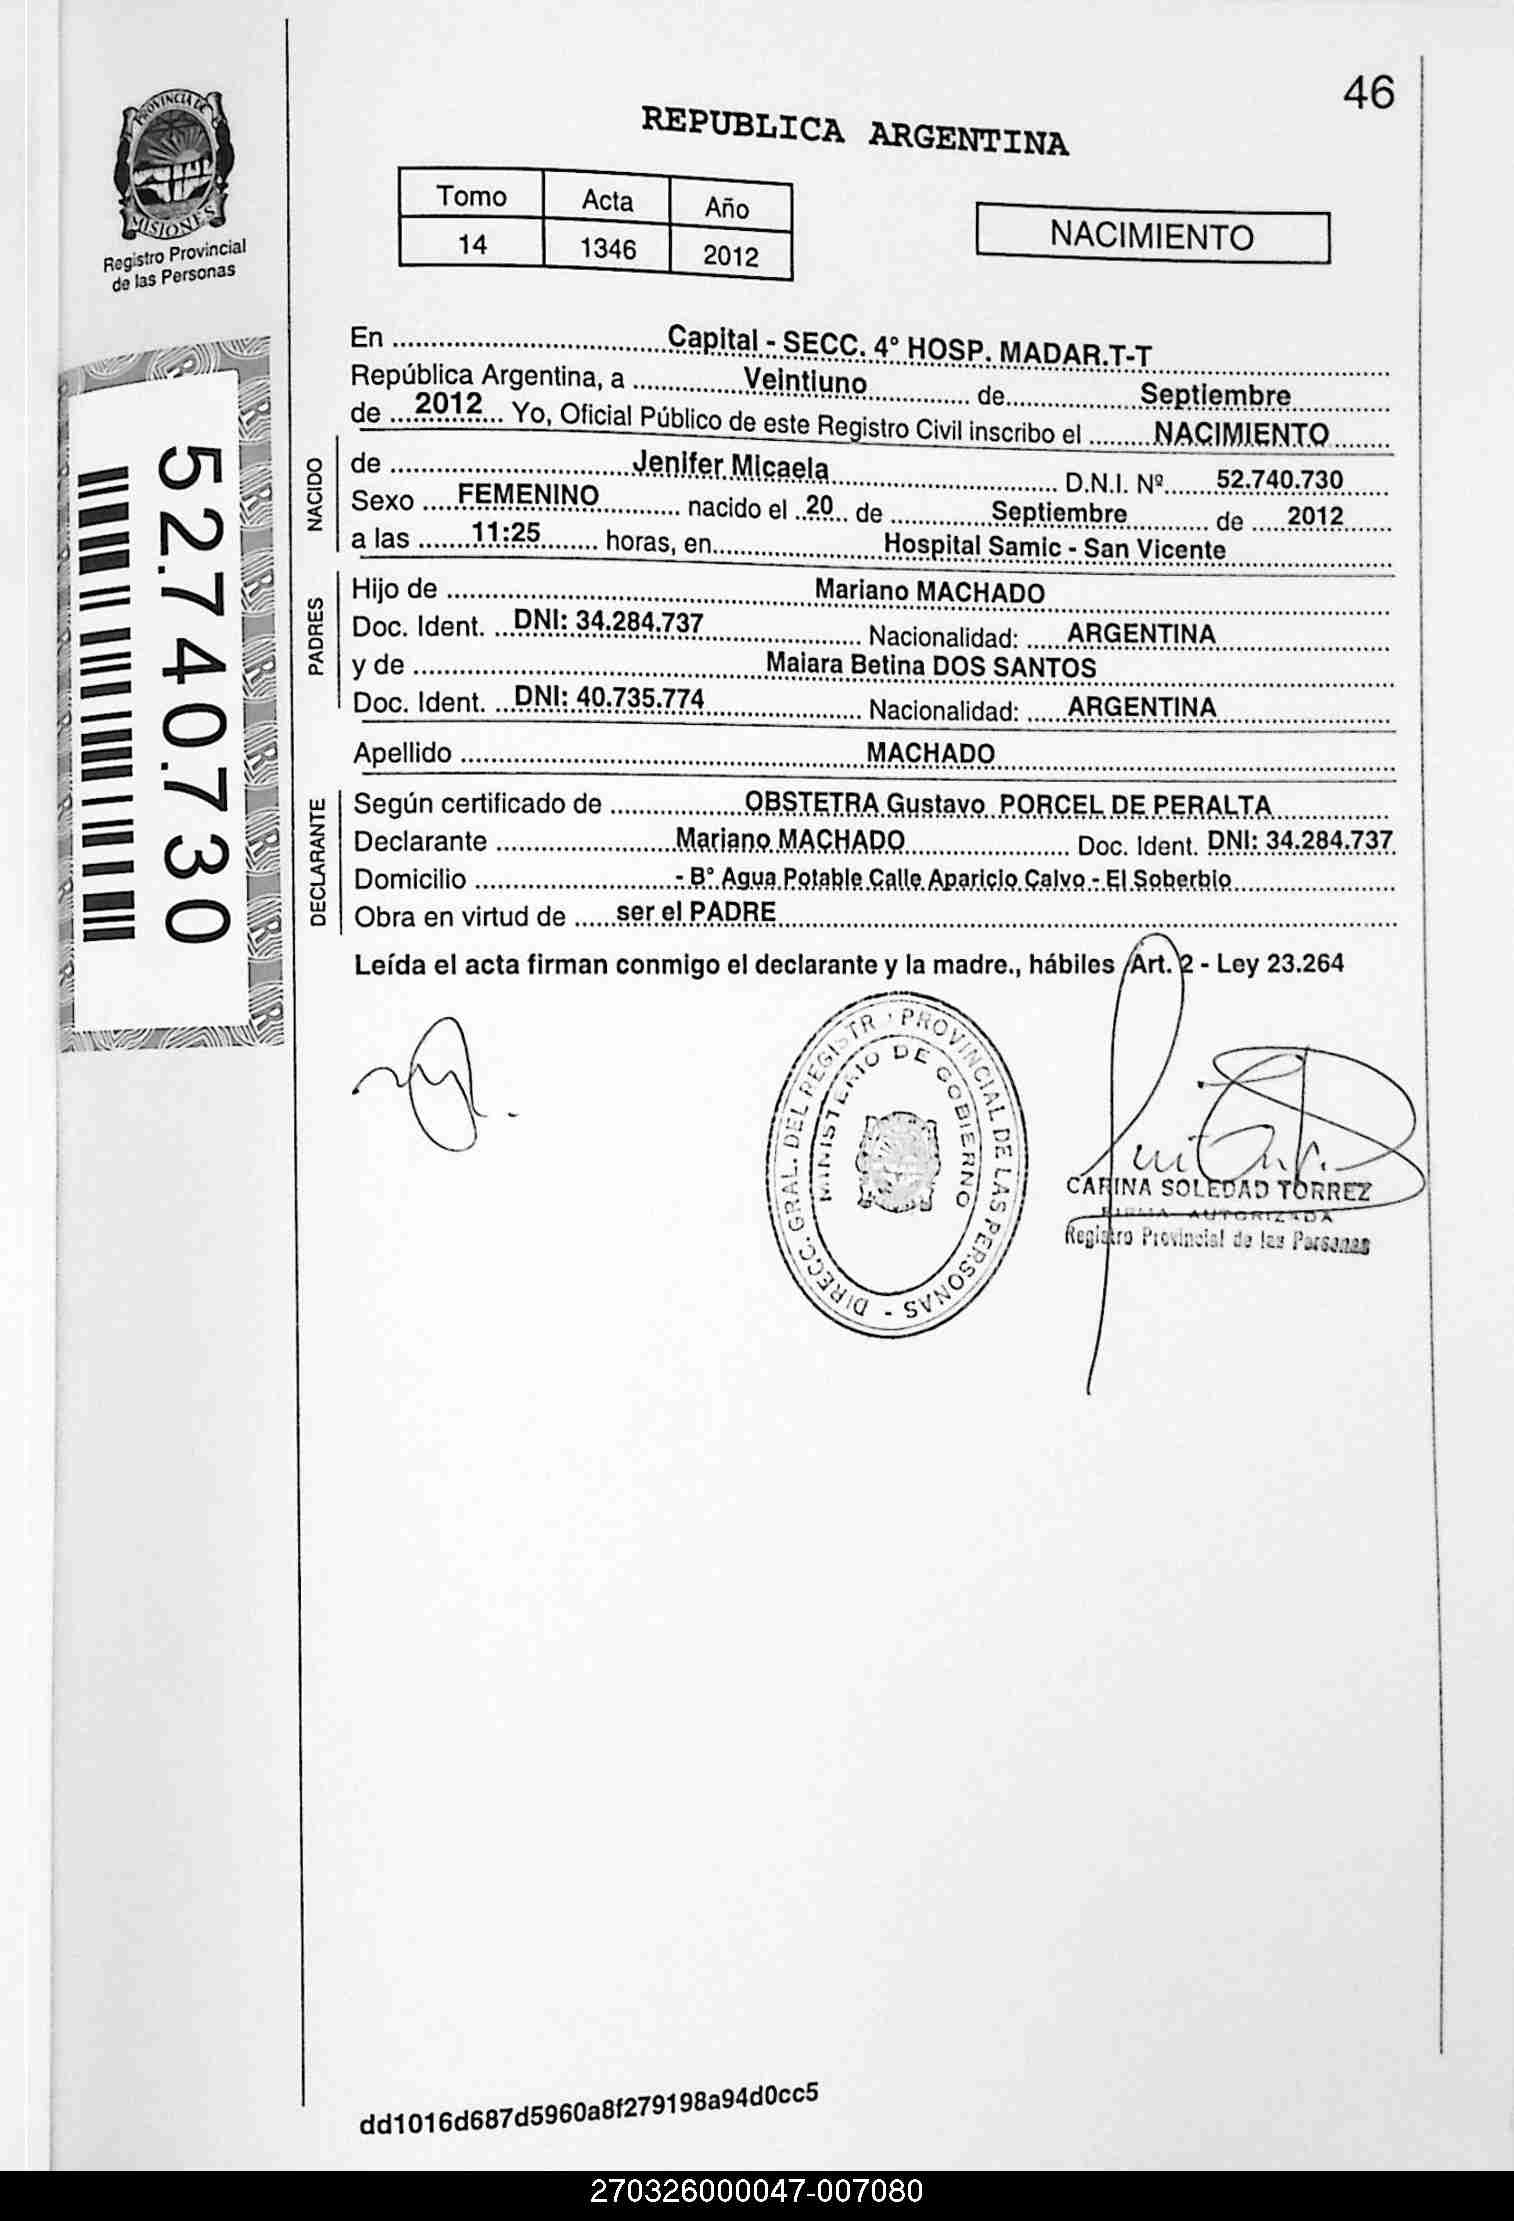 46
PROVINCIA DE
MISIONES
Registro Provincial
de las Personas
REPUBLICA ARGENTINA
Tomo Acta Año
14 1346 2012
NACIMIENTO
52.740.730
En Capital - SECC. 4° HOSP. MADAR.T-T
República Argentina, a Veintiuno de Septiembre
de 2012 Yo, Oficial Público de este Registro Civil inscribo el NACIMIENTO
NACIDO
de Jenifer Micaela D.N.I. Nº 52.740.730
Sexo FEMENINO nacido el 20 de Septiembre de 2012
a las 11:25 horas, en Hospital Samic - San Vicente
PADRES
Hijo de Mariano MACHADO
Doc. Ident. DNI: 34.284.737 Nacionalidad: ARGENTINA
y de Maiara Betina DOS SANTOS
Doc. Ident. DNI: 40.735.774 Nacionalidad: ARGENTINA
Apellido MACHADO
DECLARANTE
Según certificado de OBSTETRA Gustavo PORCEL DE PERALTA
Declarante Mariano MACHADO Doc. Ident. DNI: 34.284.737
Domicilio - B° Agua Potable Calle Aparicio Calvo - El Soberbio
Obra en virtud de ser el PADRE
Leída el acta firman conmigo el declarante y la madre., hábiles Art. 2 - Ley 23.264
DIRECC. GRAL. DEL REGISTR PROVINCIAL DE LAS PERSONAS -
MINISTERIO DE GOBIERNO
CARINA SOLEDAD TORREZ
FIRMA AUTORIZADA
Registro Provincial de las Personas
dd1016d687d5960a8f279198a94d0cc5
270326000047-007080